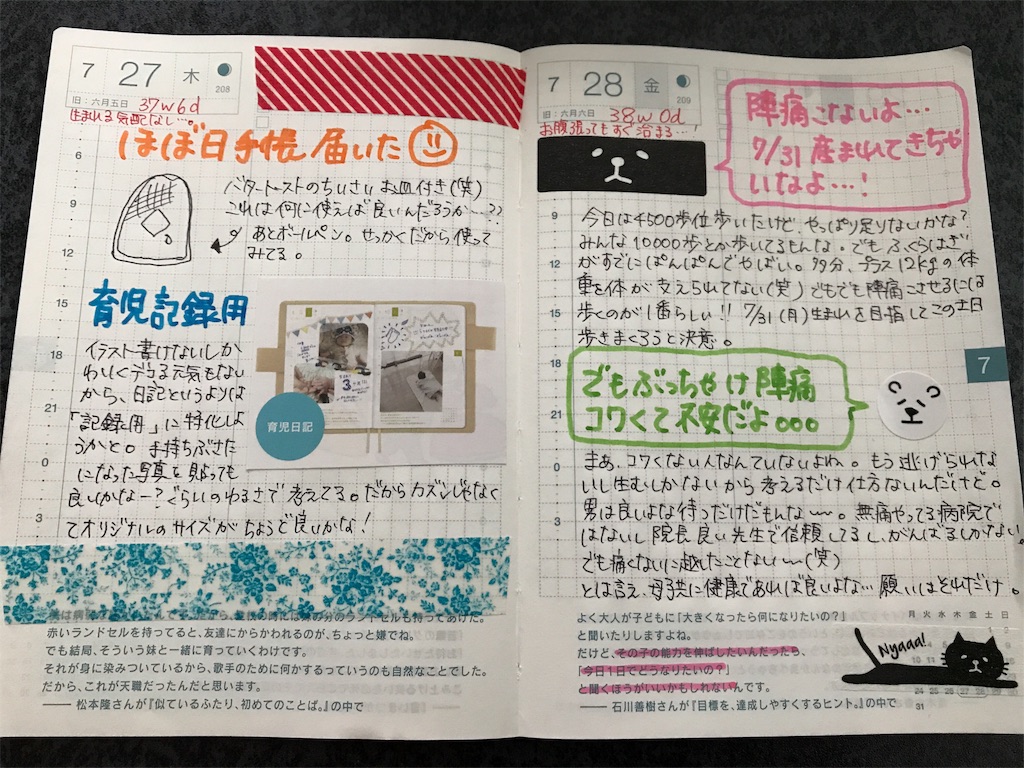 7 27 木
208
旧：六月五日 37w6d
生まれる気配なし…。
ほぼ日手帳 届いた
バタートーストのちいさい お皿付き(笑)
これは何に使えば良いんだろうか…??
あとボールペン。せっかくだから使って
みてる。
育児記録用
イラスト書けないしか
わいくデコる元気もない
から、日記というよりは
「記録用」に特化しよ
うかと。手持ちぶさた
になった写真を貼っても
良いかなー？ぐらいのゆるさで考えてる。だからカズンじゃなく
てオリジナルのサイズがちょうど良いかな！
育児日記
6
9
12
15
18
21
0
3
赤いランドセルを持ってると、友達にからかわれるのが、ちょっと嫌でね。
でも結局、そういう妹と一緒に育っていくわけです。
それが身に染みついているから、歌手のために何かするっていうのも自然なことでした。
だから、これが天職だったんだと思います。
―― 松本隆さんが『似ているふたり、初めてのことば。』の中で
7 28 金
209
旧：六月六日 38w0d
お腹張ってもすぐ治まる…！
陣痛こないよ…
7/31 産まれてきちゃ
いなよ…！
今日は4500歩位歩いたけど やっぱり足りないかな？
みんな10000歩とか歩いてるもんな。でも ふくらはぎ
がすでにぱんぱんでやばい。多分、プラス12kgの体
重を体が支えられてない(笑) でもでも陣痛こさせるには
歩くのが1番らしい!! 7/31(月)生まれを目指してこの土日
歩きまくろうと決意。
でもぶっちゃけ陣痛
コワくて不安だよ。。。
まあ、コワくない人なんていないよね。もう逃げられな
いし生むしかないから考えるだけ仕方ないんだけど。
男は良いよな待つだけだもんな〜。無痛やってる病院で
はないし院長良い先生で信頼してるし、がんばるしかない。
でも痛くないに越したことない〜(笑)
とは言え、母子共に健康であれば良いよな… 願いはそれだけ。
9
12
15
18
21
0
3
7
よく大人が子どもに「大きくなったら何になりたいの？」
と聞いたりしますよね。
だけど、その子の能力を伸ばしたいんだったら、
「今日1日でどうなりたいの？」
と聞くほうがいいかもしれないんです。
―― 石川善樹さんが『目標を、達成しやすくするヒント。』の中で
月 火 水 木 金 土 日
Nyaaa!
24 25 26 27 28 29 30
31